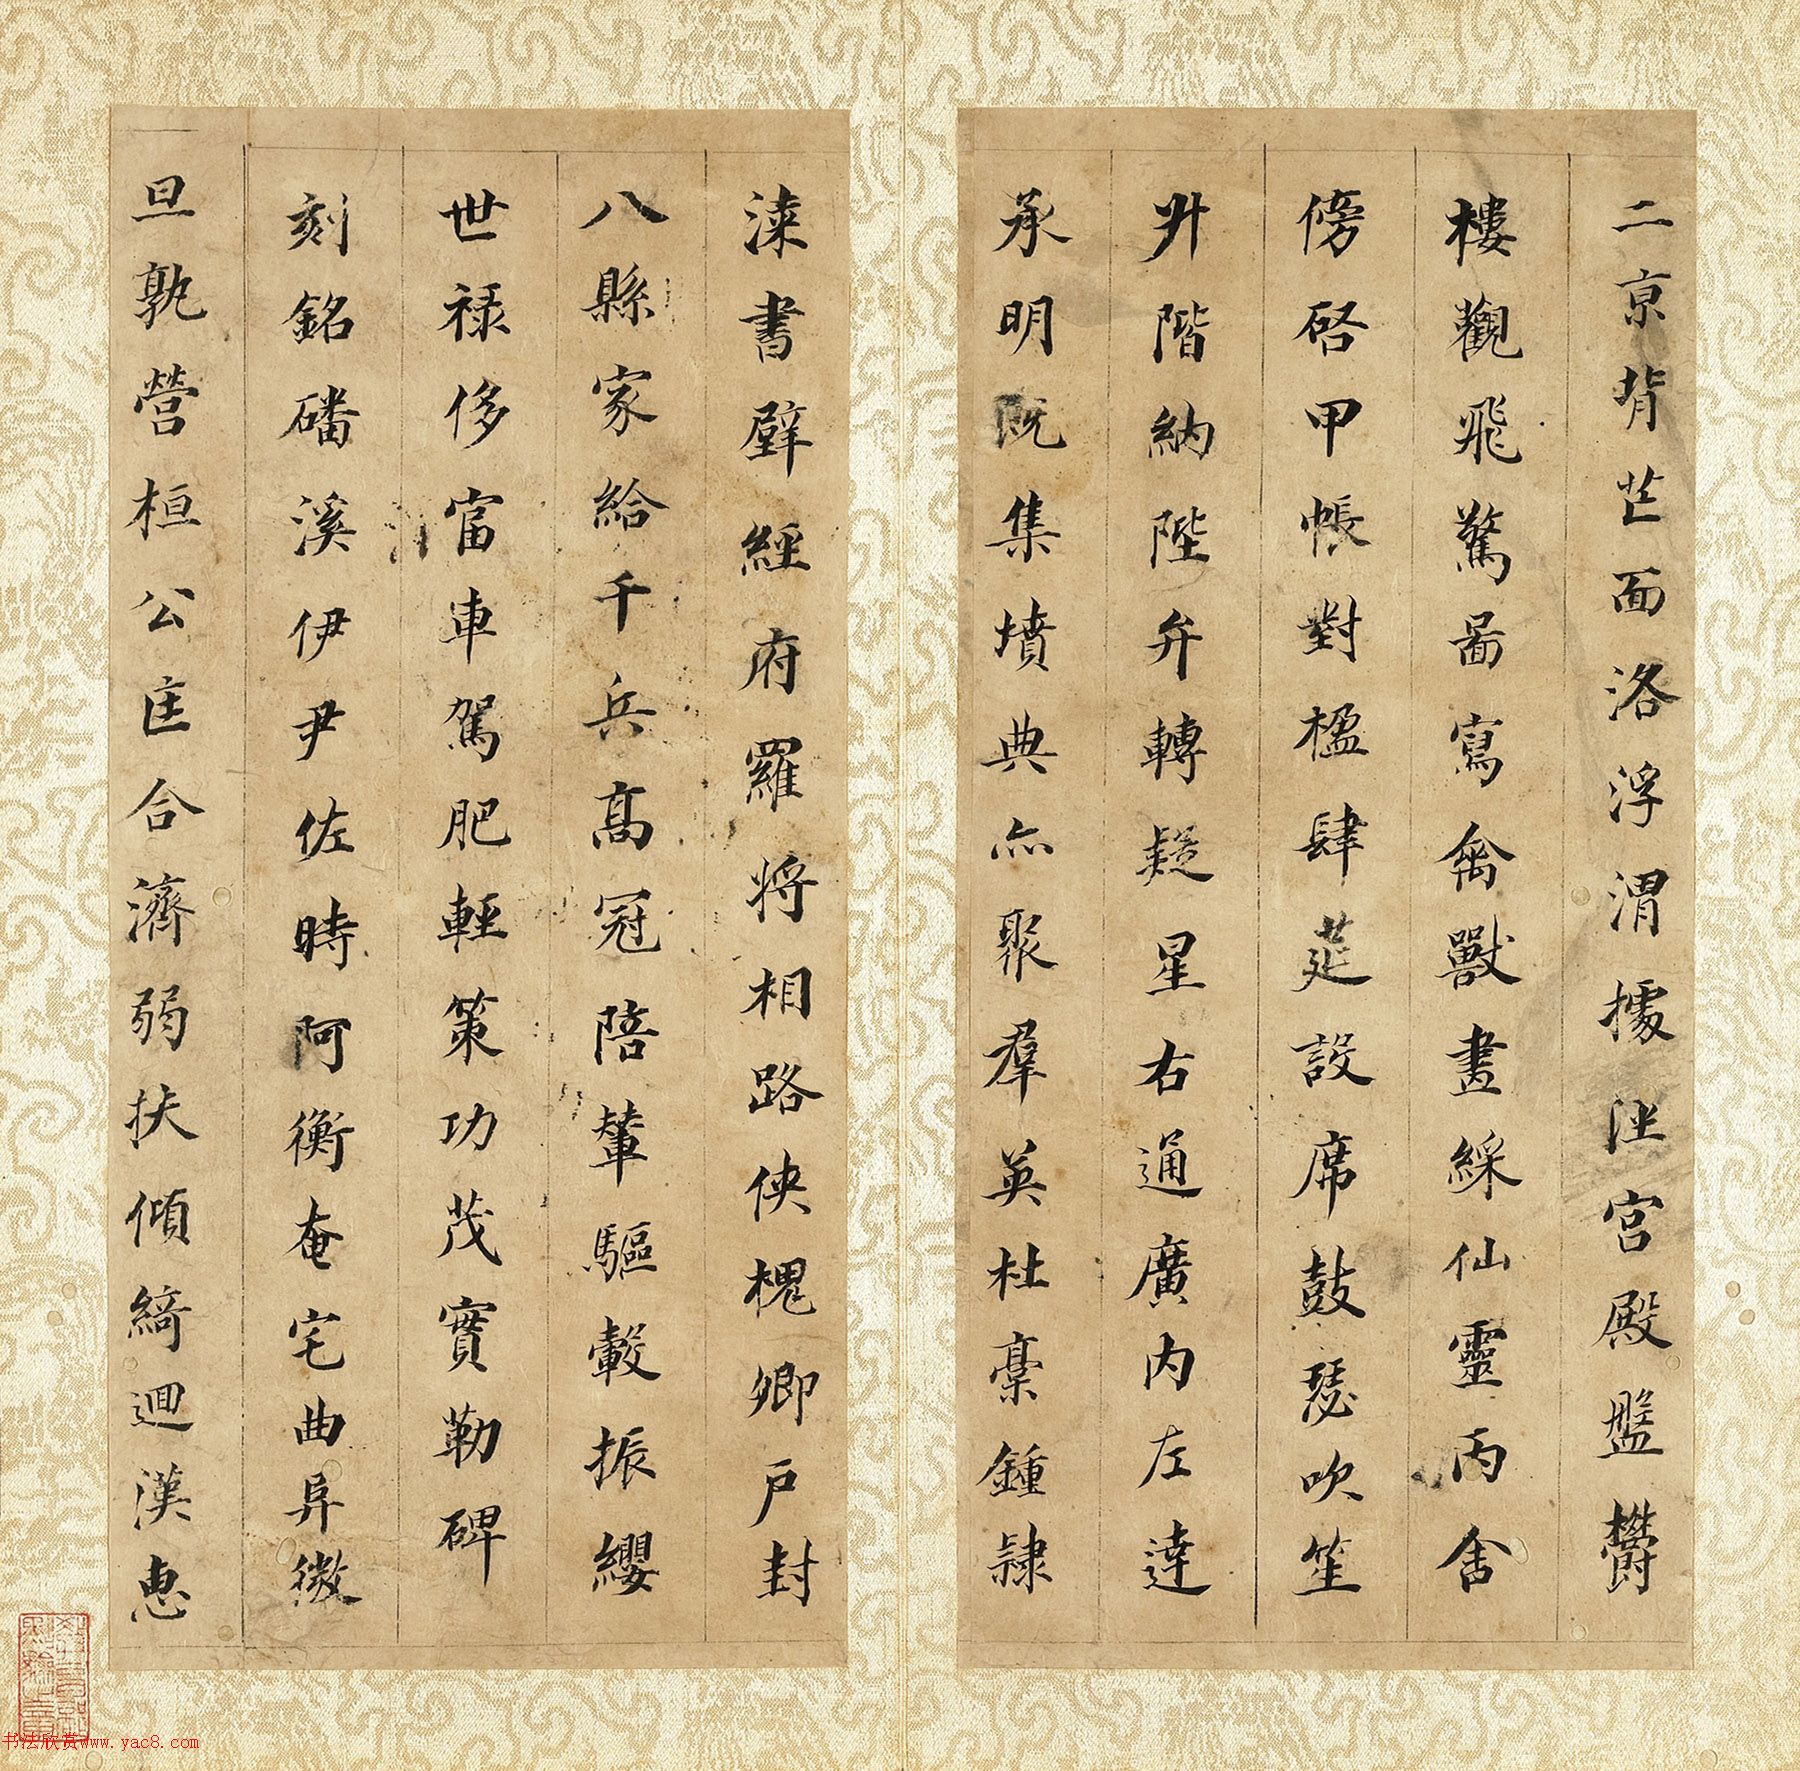 二京背芒面洛浮渭據涇宮殿盤欝
樓觀飛驚圖寫禽獸畫綵仙靈丙舍
傍啓甲帳對楹肆筵設席鼓瑟吹笙
升階納陛弁轉疑星右通廣内左達
承明既集墳典亦聚羣英杜稾鍾隸
漆書壁經府羅將相路俠槐卿戶封
八縣家給千兵髙冠陪輦驅轂振纓
世祿侈富車駕肥輕策功茂實勒碑
刻銘磻溪伊尹佐時阿衡奄宅曲阜微
旦孰營桓公匡合濟弱扶傾綺迴漢惠
书法欣赏www.yac8.com